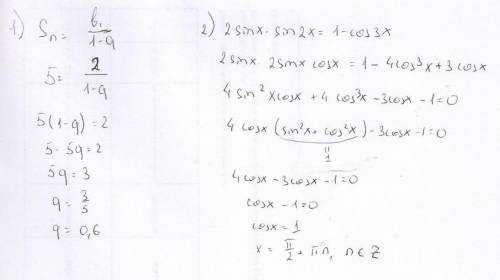 1) Sn = b₁/(1-q)
5 = 2/(1-q)
5(1-q) = 2
5 - 5q = 2
5q = 3
q = 3/5
q = 0,6
2) 2 sinx · sin 2x = 1 - cos 3x
2 sinx · 2 sinx cosx = 1 - 4cos³x + 3 cosx
4 sin²x cosx + 4 cos³x - 3cosx - 1 = 0
4 cosx (sin²x + cos²x) - 3cosx - 1 = 0
1
4 cosx - 3cosx - 1 = 0
cosx - 1 = 0
cosx = 1
x = π/2 + πn, n ∈ Z